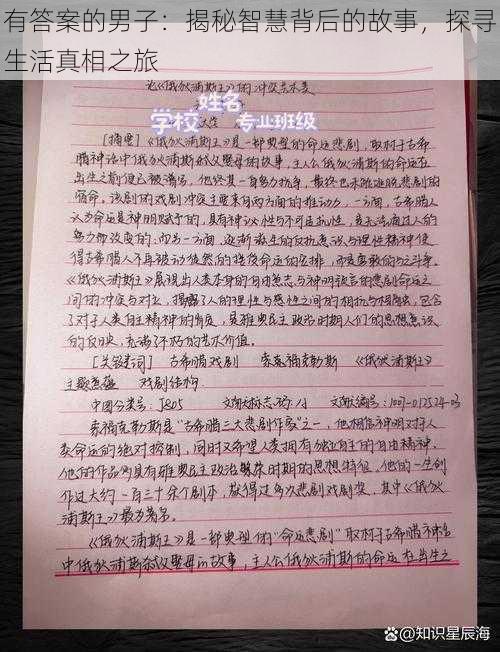 有答案的男子：揭秘智慧背后的故事，探寻
生活真相之旅
论《俄狄浦斯王》的冲突艺术美
姓名
学校 专业班级
[摘要]《俄狄浦斯王》是一部典型的命运悲剧，取材于古希
腊神话中俄狄浦斯弑父娶母的故事，主人公俄狄浦斯的命运在
出生之前便已被注定，他终其一身努力抗争，最终也未能逃脱悲剧的
宿命，该剧的戏剧冲突主要来自两方面的推动力，一方面，古希腊人
认为命运是神明赋予的，具有神议性与不可抵抗性，是无法通过人的
努力而改变的，而另一方面，逐渐激生的反抗意识与理性精神使
得古希腊人不再被动依然的接受命运的安排，而是勇敢的与之斗争。
《俄狄浦斯王》展现出人类本身的自由意志与神明谕言的悲剧命运之
间的冲突与对立，揭露了人的理性与感性之间的相抗与相离，包含
了对于人类自主精神的肯定，是雅典民主政治时期人们的思想意识
的反映，充满了不朽的艺术价值。
[关键词] 古希腊戏剧 索福克勒斯 《俄狄浦斯王》
主题意蕴 戏剧结构
中图分类号：J805 文献标志码：A 文献编号：1007-0125
索福克勒斯是“古希腊三大悲剧作家”之一，他相信神明对于人
类命运的绝对控制，同时又希望人类拥有独立自主的自由精神，
他的作品多具有雅典民主政治繁荣时期的思想特征，他的一生创
作过大约一百二十余个剧本，获得过多次悲剧戏剧奖，其中《俄狄
浦斯王》最为著名。
《俄狄浦斯王》是一部典型的“命运悲剧”取材于古希腊神话
中俄狄浦斯弑父娶母的故事，主人公俄狄浦斯的命运在出生之
知识星辰海